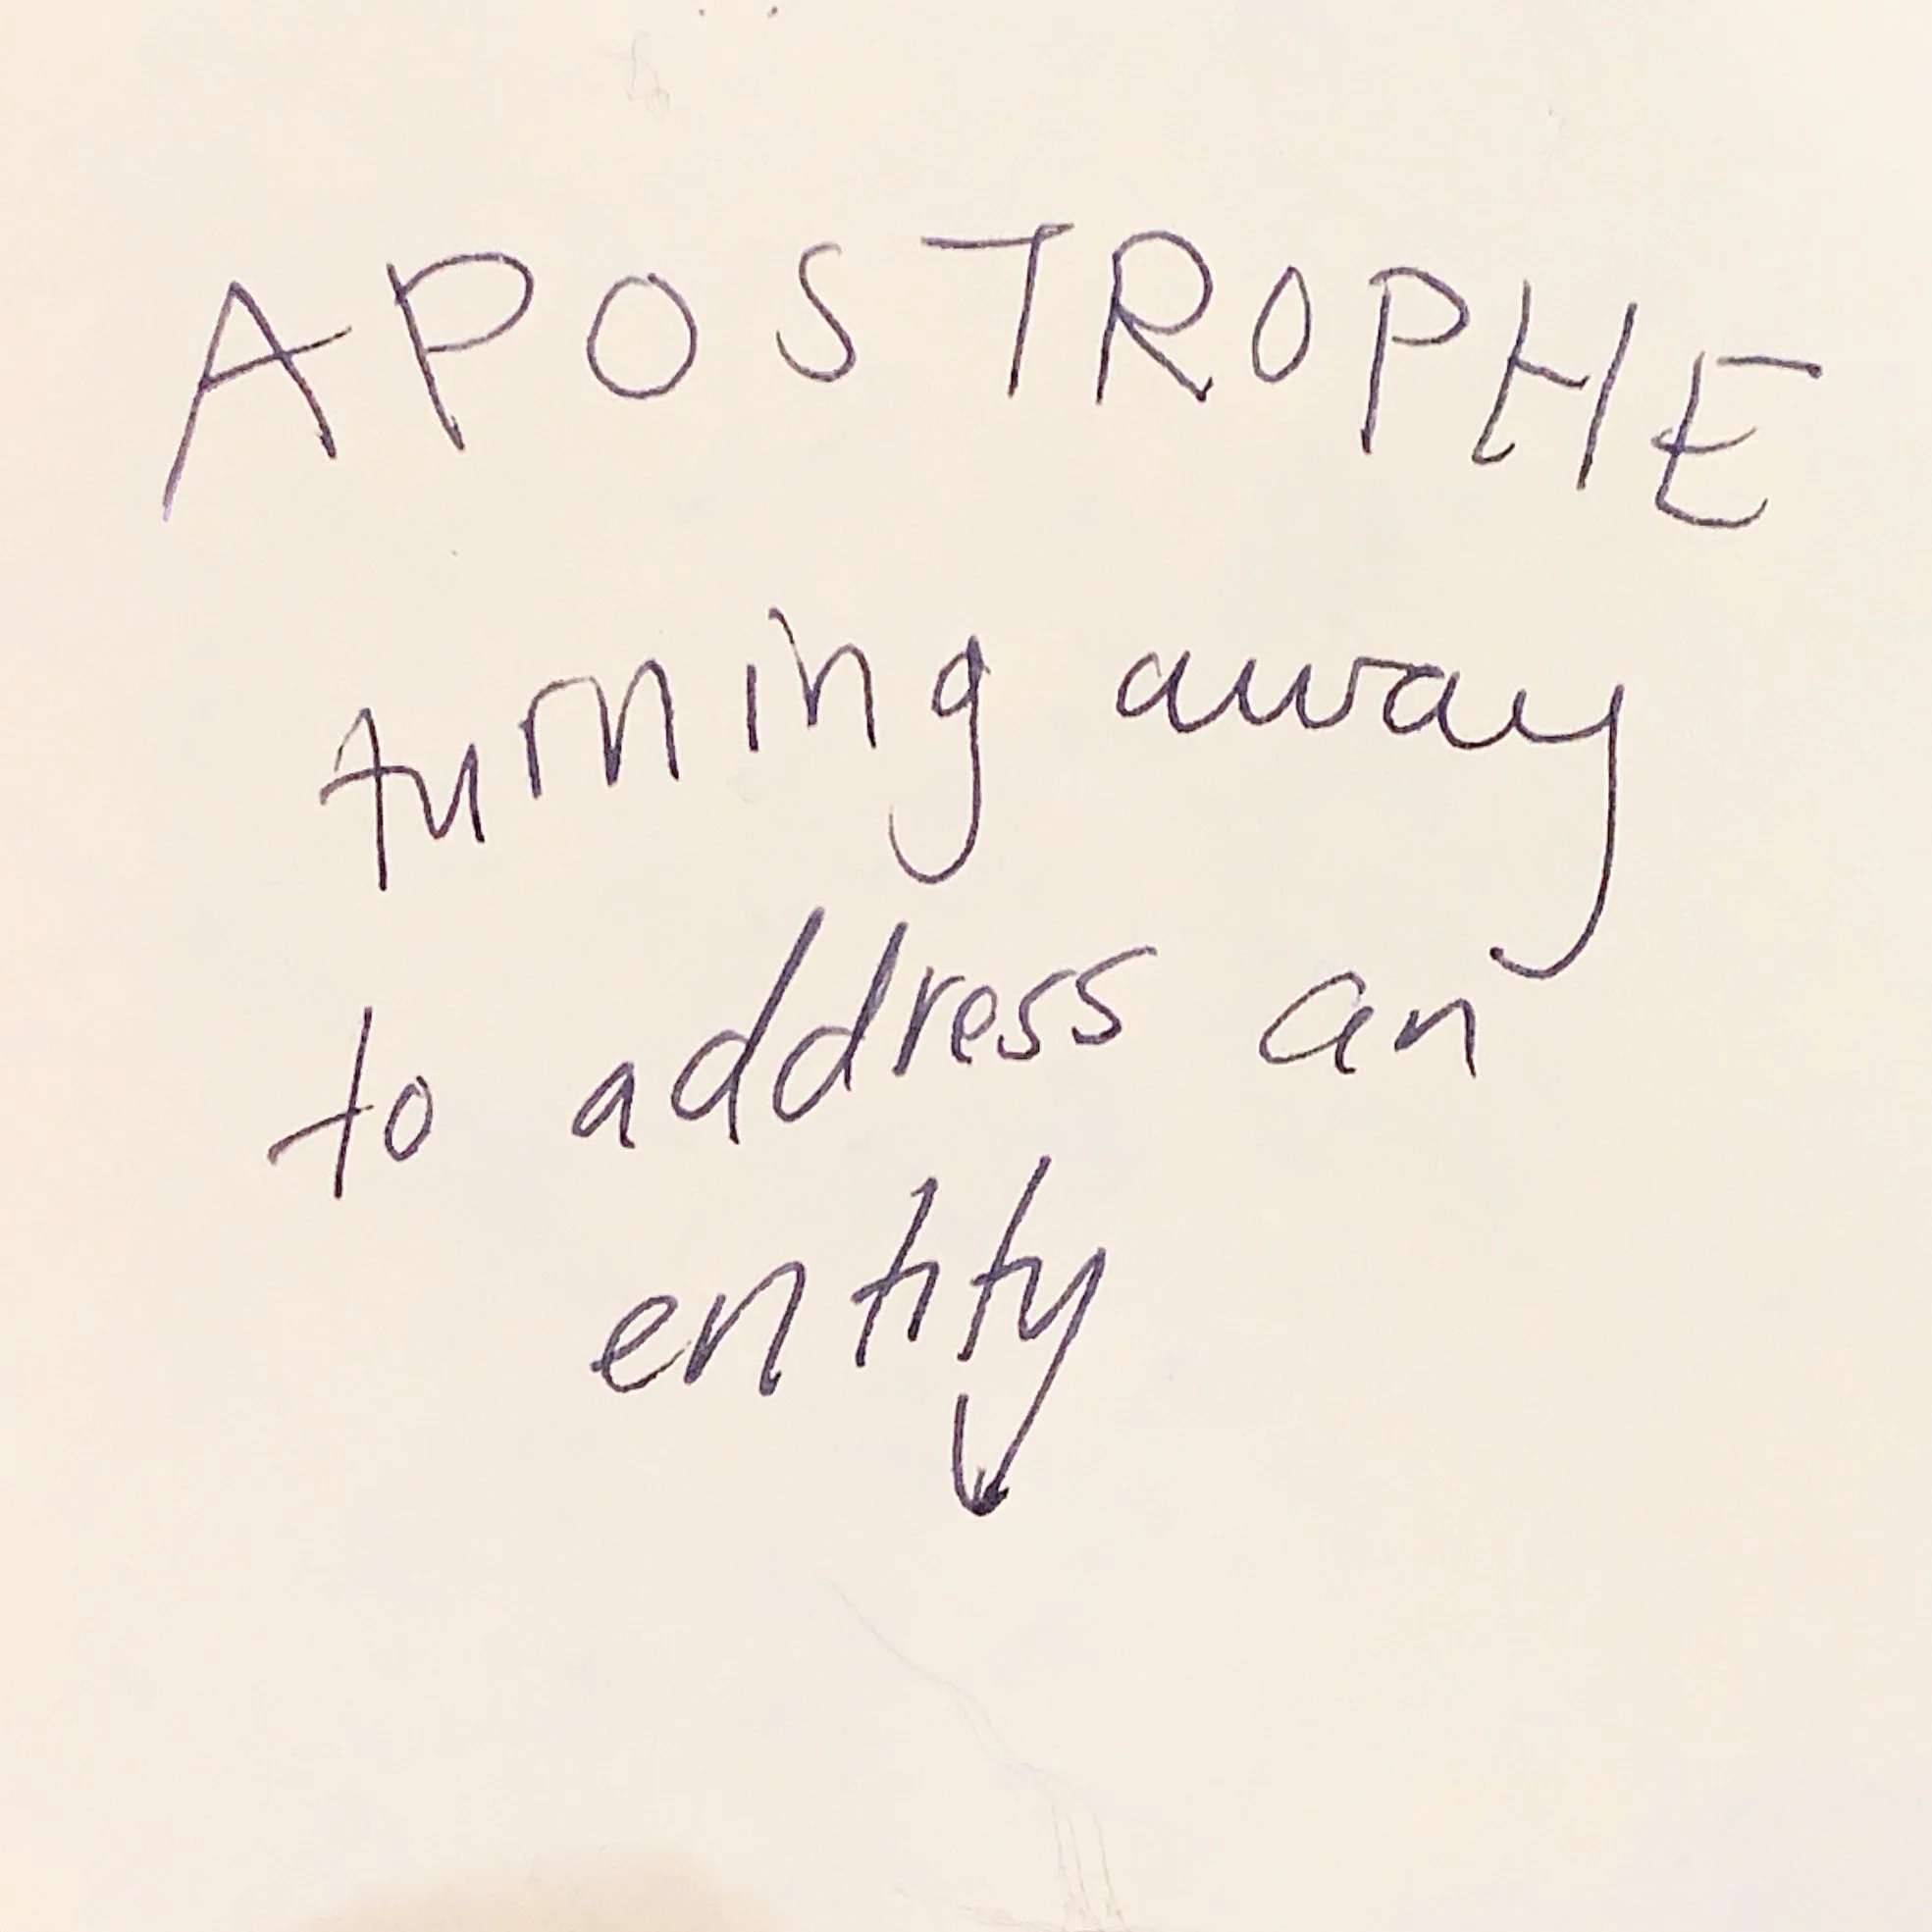 APOSTROPHE
turning away
to address an
entity